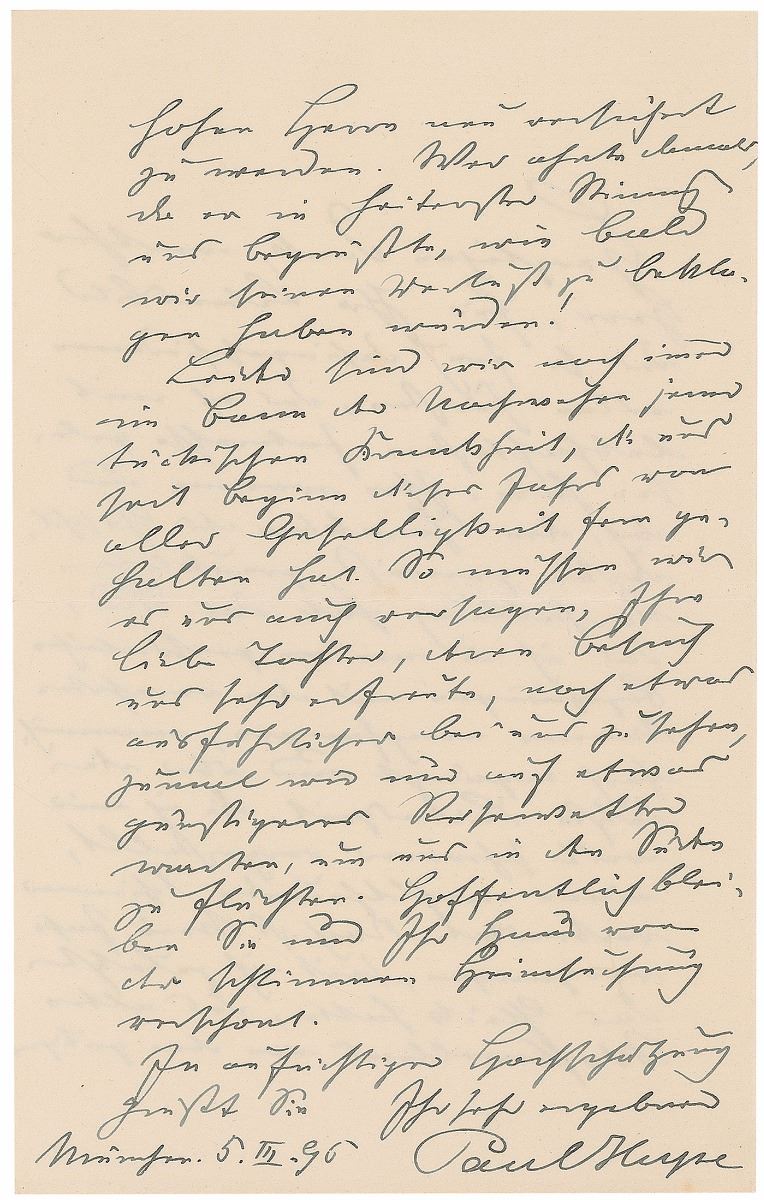 hohen Herrn neu versichert
zu werden. Wer ahnte damals,
da er in heiterster Stimmg
uns begrüßte, wie bald
wir seinen Verlust zu bekla-
gen haben würden!
Leider sind wir noch immer
im Bann der Nachwehen jener
tückischen Krankheit, die uns
seit Beginn dieses Jahrs von
aller Geselligkeit fern ge-
halten hat. So mußten wir
es uns auch versagen, Ihre
liebe Tochter, deren Besuch
uns sehr erfreute, noch etwas
ausführlicher bei uns zu sehen,
zumal wir nur auf etwas
günstigeres Reisewetter
warten, um uns in den Süden
zu flüchten. Hoffentlich blei-
ben Sie und Ihr Haus von
der schlimmen Heimsuchung
verschont.
In aufrichtiger Hochschätzung
grüßt Sie Ihr sehr ergebener
München. 5. III. 95 Paul Heyse